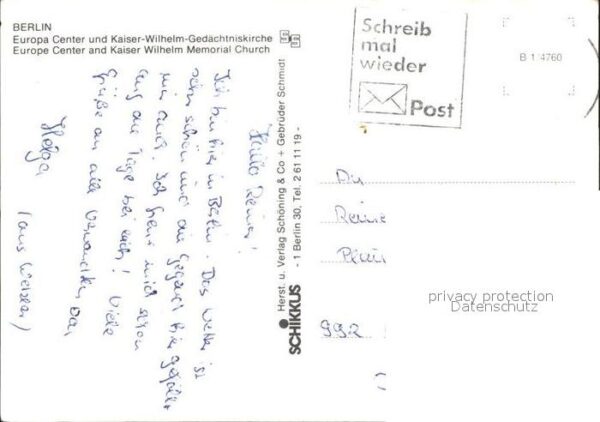 BERLIN
Europa Center und Kaiser-Wilhelm-Gedächtniskirche
Europe Center and Kaiser Wilhelm Memorial Church
Hallo Reiner!
Ich bin hier in Berlin. Das Wetter ist
sehr schön und die Gegend hier gefällt
mir auch. Ich freue mich schon
auf die Tage bei euch! Viele
Grüße an alle Verwandten von
Helga
(aus Weiden)
SCHIKKUS
Herst. u. Verlag Schöning & Co + Gebrüder Schmidt
- 1 Berlin 30, Tel. 2 61 11 19 -
Schreib
mal
wieder
Post
B 1 4760
Reine
992
privacy protection
Datenschutz